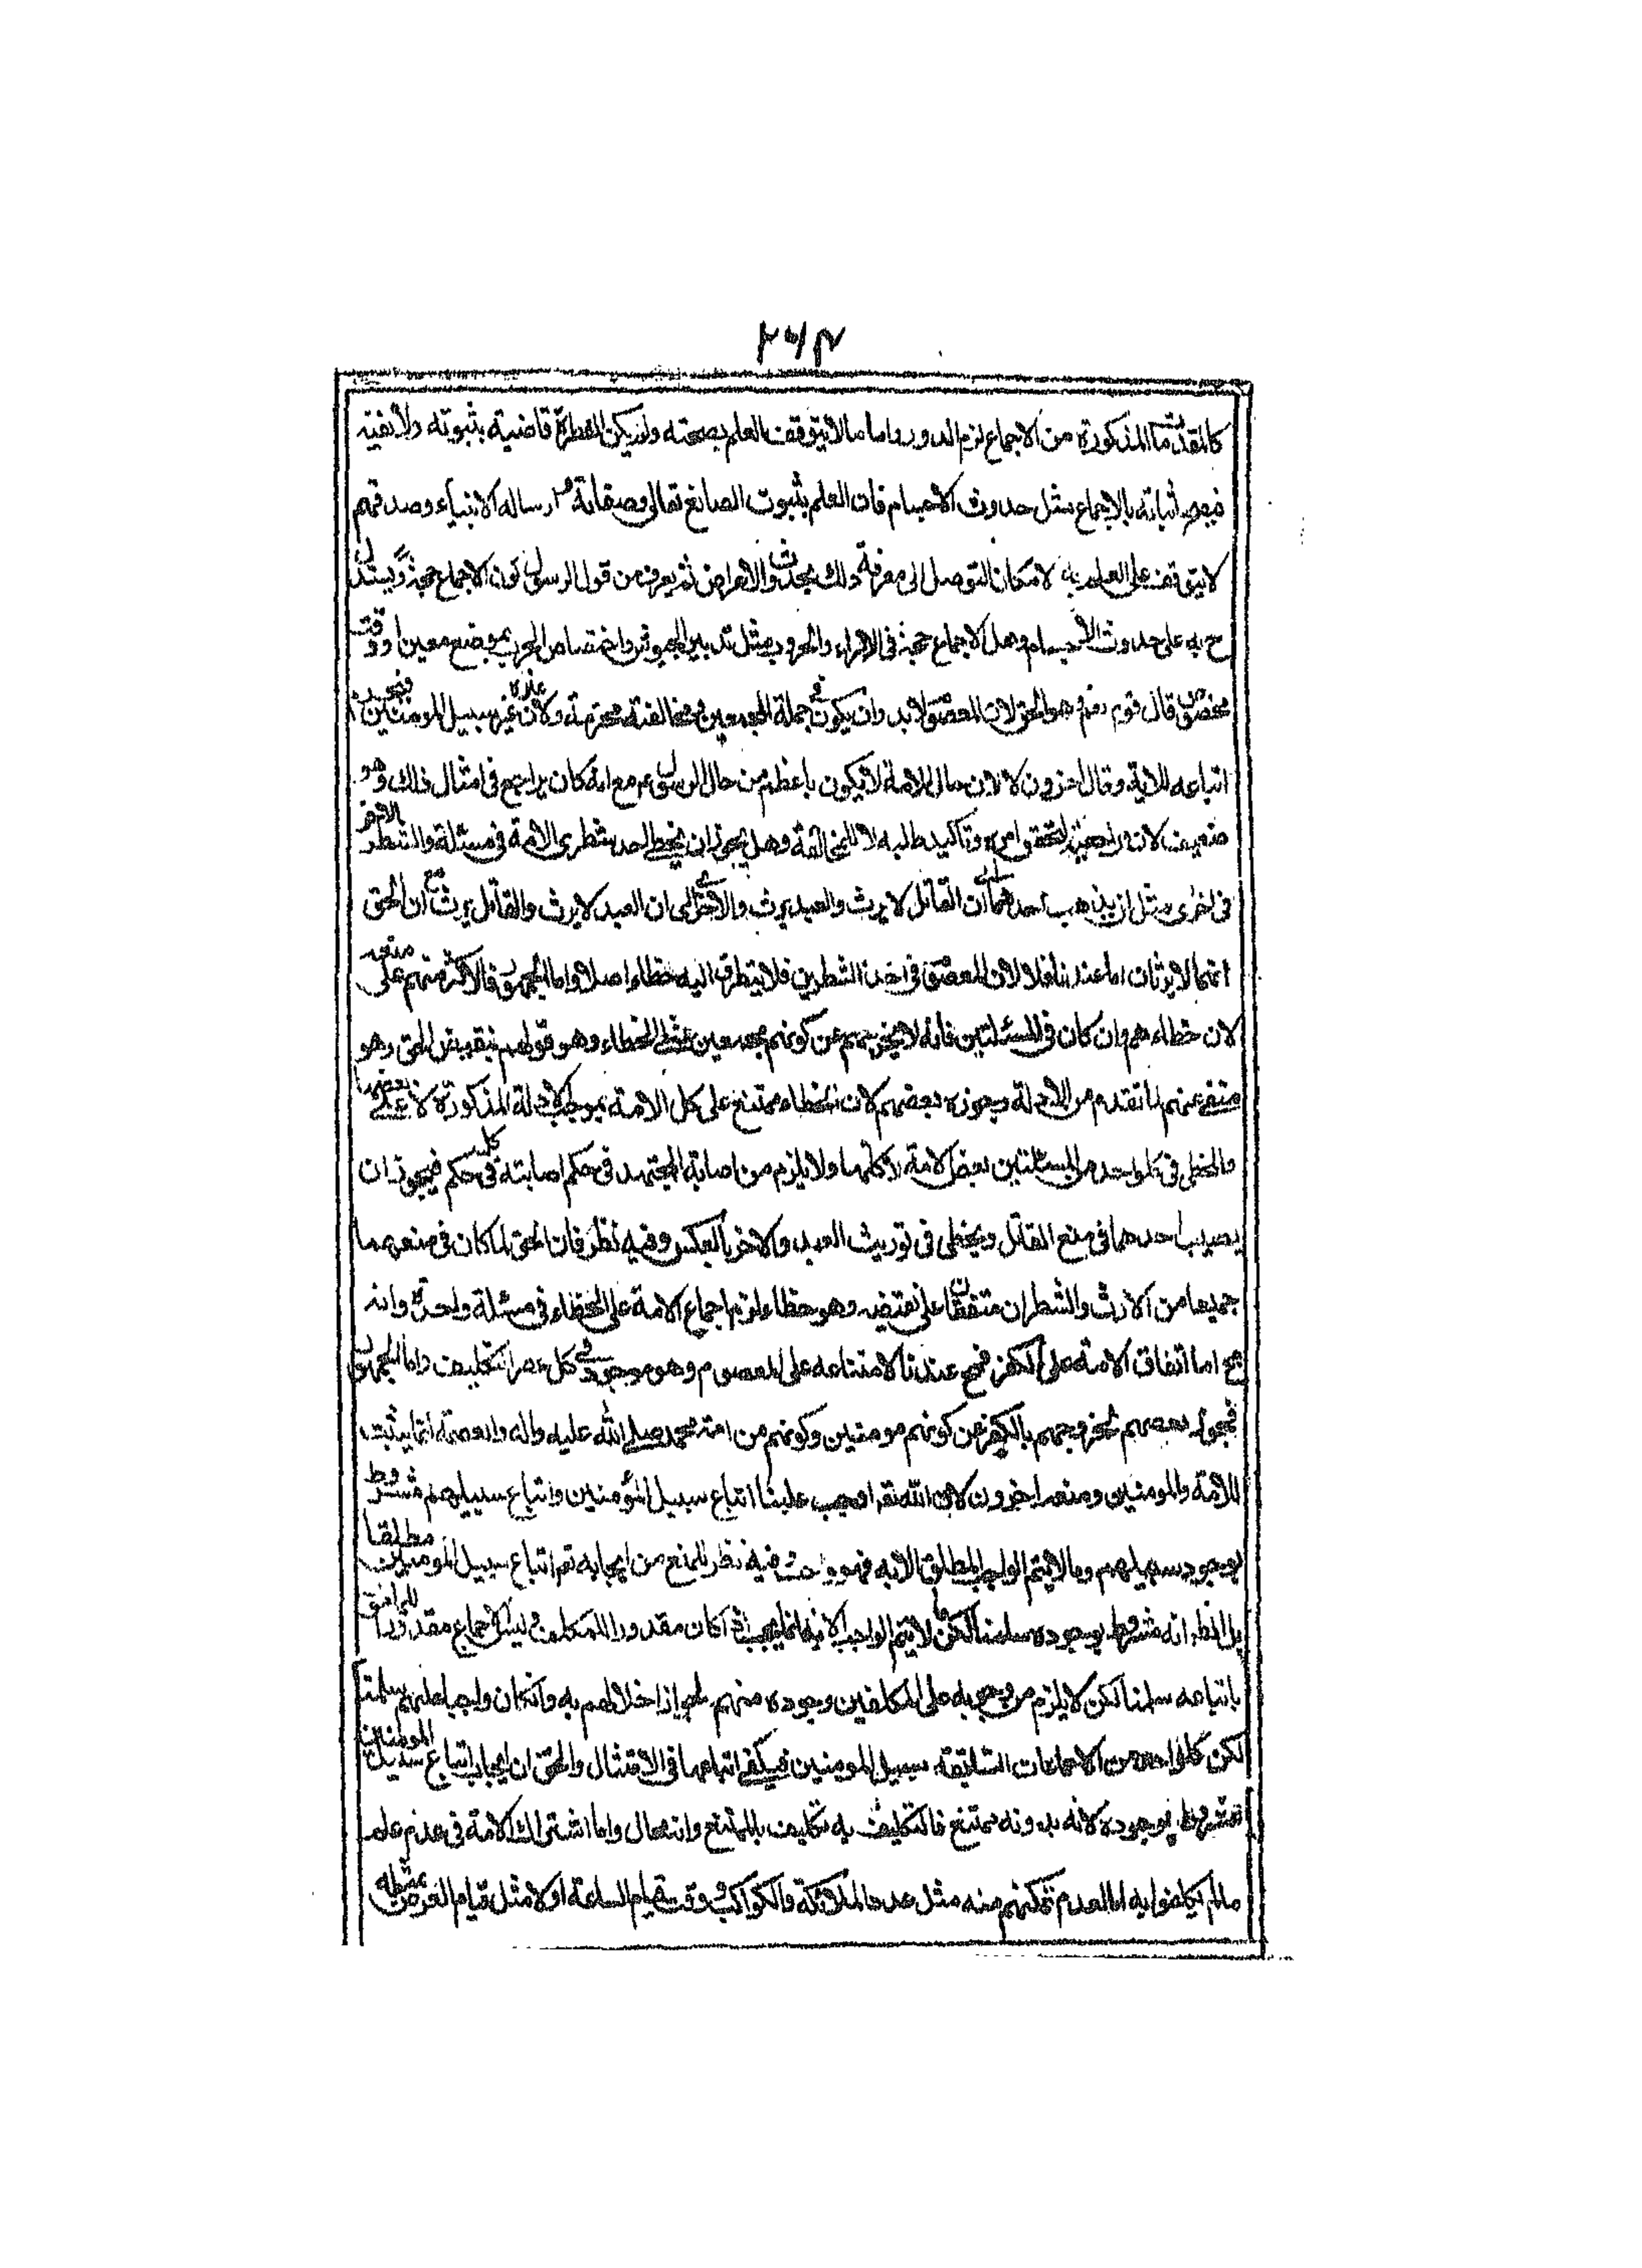 ٢٦٣
كالمقدمات المذكورة من الاجماع لزم الدور واما ما لا يتوقف العلم بصحته ولم يكن الفطرة قاضية بثبوته ولا نفيه
فيصح اثباته بالاجماع مثل حدوث الاجسام فان العلم بثبوت الصانع تعالى وصفاته وارساله الانبياء وصدقهم
لا يتوقف على العلم به لامكان التوصل الى معرفة ذلك بحدوث الاعراض ثم يعرف من قول الرسول كون الاجماع حجة ويستدل
ح به على حدوث الاجسام وهل الاجماع حجة فى الاراء والحروب مثل تدبير الجيوش واختصاص الحرب بموضع معين او وقت
مخصوص قال قوم نعم وهو الحق لان المعصوم لابد وان يكون فى جملة المجمعين فمخالفته محرمة ولان غيره غير سبيل المومنين فيحرم
اتباعه للاية وقال اخرون لا لان حال الامة لا يكون باعظم من حال الرسول مع انه كان يراجع فى امثال ذلك وهو
ضعيف لان المراجعة لتحقق امره وتاكيد طلبه لا للمخالفة وهل يجوز ان يخطى احد شطرى الامة فى مسئلة والشطر الاخر
فى اخرى مثل ان يذهب احدهما الى ان القاتل لا يرث والعبد يرث والاخر الى ان العبد لا يرث والقاتل يرث مع ان الحق
انهما لا يرثان اما عندنا فلا لان المعصوم فى احد الشطرين فلا يتطرق اليه خطاء اصلا واما الجمهور فالاكثر منهم على منعه
لان خطاءهم وان كان فى المسئلتين فانه لا يخرجهم عن كونهم مجمعين على الخطاء وهو قولهم بنقيض الحق وهو
منفى عنهم لما تقدم من الادلة وجوزه بعضهم لان الخطاء ممتنع على كل الامة بموجب الادلة المذكورة لا على بعضها
والمخطى فى كل واحد من المسئلتين بعض الامة لا كلها ولا يلزم من اصابة المجتهد فى حكم اصابته فى كل حكم فيجوز ان
يصيب احدهما فى منع القاتل ويخطى فى توريث العبد والاخر بالعكس وفيه نظر فان الحق لما كان فى منعهما
جميعا من الارث والشطران متفقان على نقيضه وهو خطاء لزم اجماع الامة على الخطاء فى مسئلة واحدة وانه
مح اما اتفاق الامة على الكفر فمح عندنا لامتناعه على المعصوم وهو موجود فى كل عصر التكليف واما الجمهور
فجوزه بعضهم لخروجهم بالكفر عن كونهم مومنين وكونهم من امة محمد صلى الله عليه واله والعصمة انما يثبت
للامة والمومنين ومنعه اخرون لان الله تع اوجب علينا اتباع سبيل المؤمنين واتباع سبيلهم مشروط
بوجود سبيلهم وما لا يتم الواجب المطلق الا به فهو واجب فيه نظر للمنع من ايجابه تع اتباع سبيل المومنين مطلقا
بل الظ انه مشروط بوجوده سلمنا لكن ما لا يتم الواجب الا به انما يجب اذا كان مقدورا للمكلف وليس الاجماع مقدورا
باتباعه سلمنا لكن لا يلزم من وجوبه على المكلفين وجوده منهم لجواز اخلالهم به وان كان واجبا عليهم سلمنا
لكن كل واحد من الاجماعات السابقة سبيل المومنين فيكفى اتباعها فى الامتثال والحق ان ايجاب اتباع سبيل المومنين
مشروط بوجوده لانه بدونه ممتنع فالتكليف به تكليف بالممتنع وانه محال واما اشتراك الامة فى عدم علم
ما لم يكلفوا به اما لعدم تمكنهم منه مثل عدد الملائكة والكواكب ووقت قيام الساعة او لا مثل قيام العرض